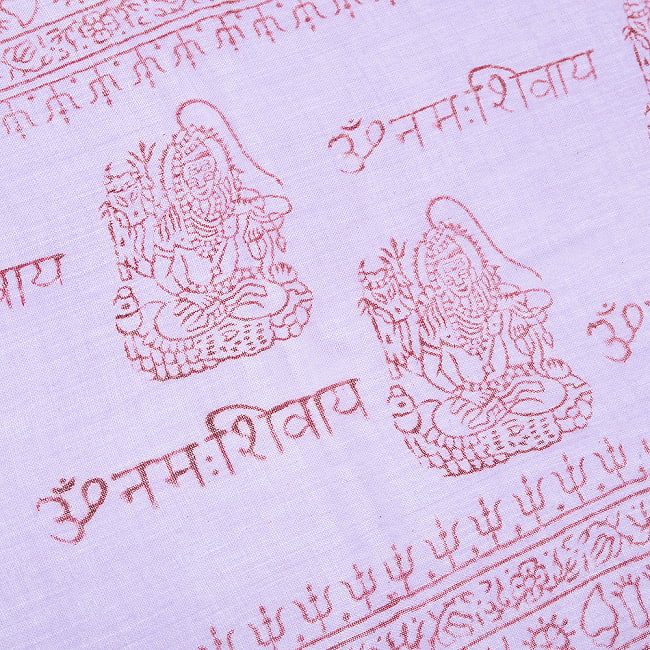 ॐ नमः शिवाय
वाय
ॐ
ॐ नमः शिवाय